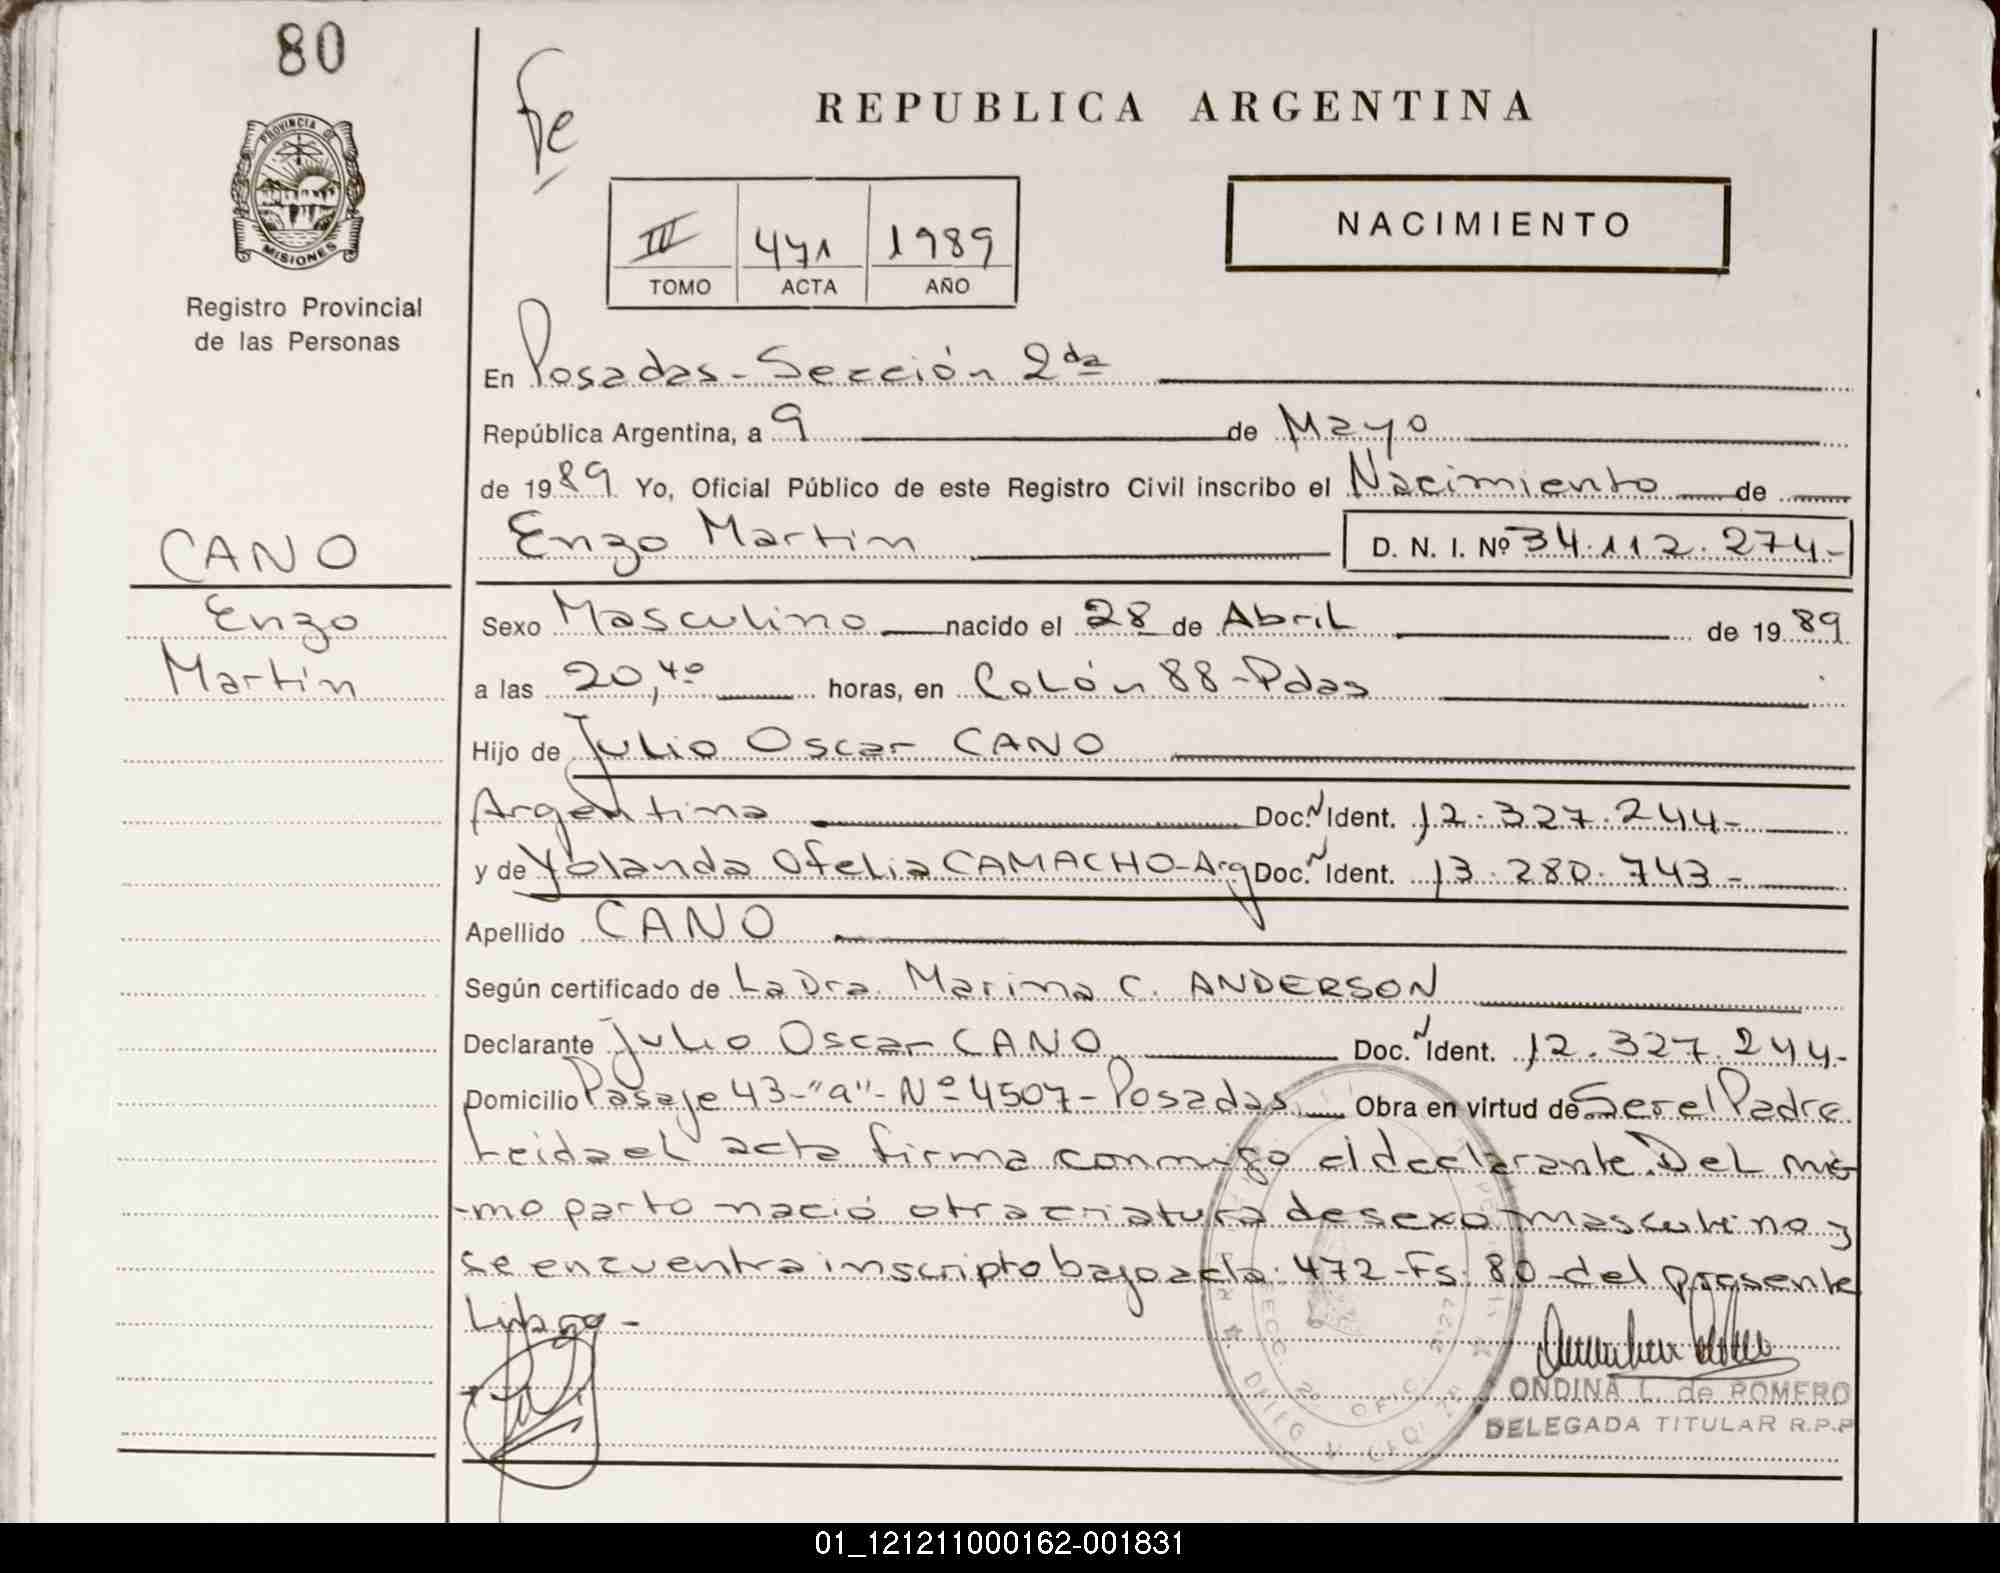 80
PROVINCIA DE
MISIONES
Registro Provincial
de las Personas
CANO
Enzo
Martín
Fe
REPUBLICA ARGENTINA
III 471 1989
TOMO ACTA AÑO
NACIMIENTO
En Posadas - Sección 2da
República Argentina, a 9 de Mayo
de 1989 Yo, Oficial Público de este Registro Civil inscribo el Nacimiento de
Enzo Martín D. N. I. Nº 34.112.274-
Sexo Masculino nacido el 28 de Abril de 1989
a las 20,40 horas, en Colón 88-Pdas
Hijo de Julio Oscar CANO
Argentina Doc. Ident. 12.327.244-
y de Yolanda Ofelia CAMACHO-Arg Doc. Ident. 13.280.743-
Apellido CANO
Según certificado de La Dra. Marina C. ANDERSON
Declarante Julio Oscar CANO Doc. Ident. 12.327.244-
Domicilio Pasaje 43-"a"-Nº 4507-Posadas Obra en virtud de Ser el Padre
Leida el acta firma conmigo el declarante. Del mis
-mo parto nació otra criatura de sexo masculino y
se encuentra inscripto bajo acta: 472-Fs: 80-del presente
Libro -
ONDINA L. de ROMERO
DELEGADA TITULAR R.P.P
01_121211000162-001831